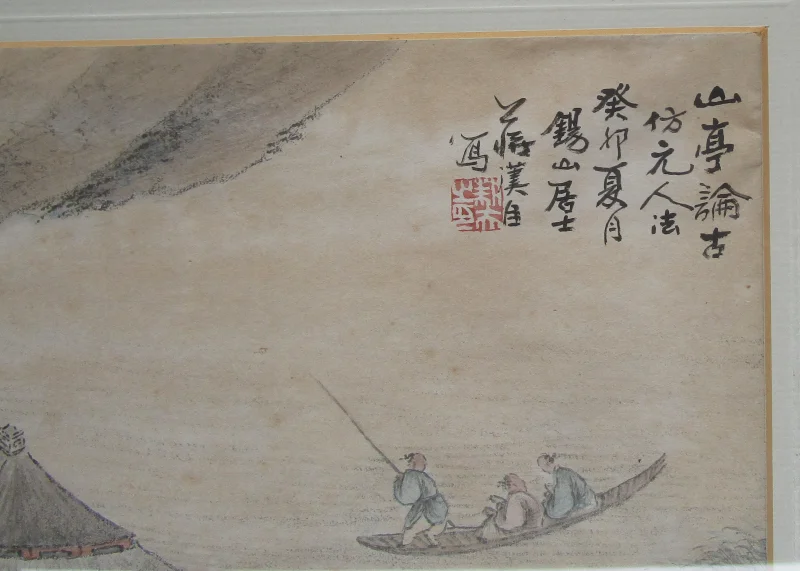 山亭論古
仿元人法
癸卯夏月
錫山居士
漢
寫